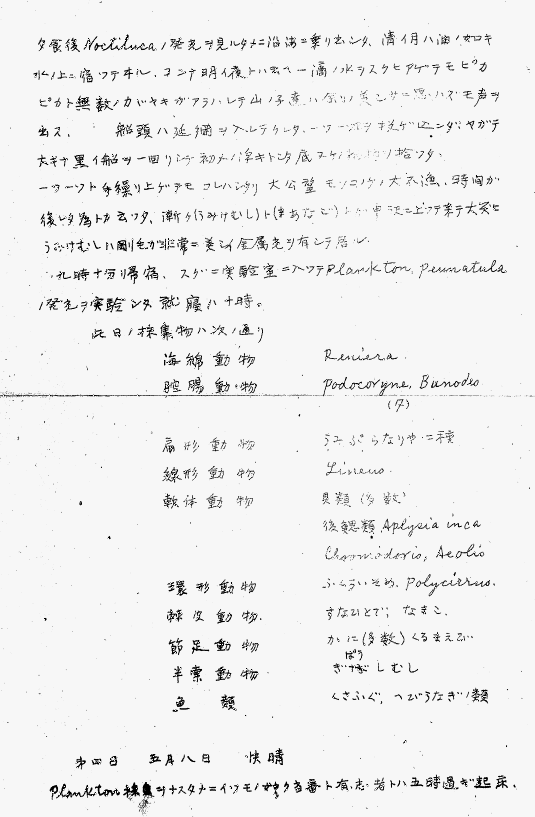 夕食後Noctilucaノ発光ヲ見ルタメニ沿海ニ乗リ出シタ、清イ月ハ油ノ如キ
水ノ上ニ宿ツテヰル、コンナ明イ夜トハ云ヘ一滴ノ水ヲスクヒアゲテモピカ
ピカト無数ノカヾヤキガアラハレテ山ノ子達ハ余リノ美シサニ思ハズモ声ヲ
出ス、 船頭ハ延縄ヲ入レテクレタ、
大キナ黒イ船ヲ一回リシテ初メノ浮キトタ底
手繰リ上ゲテモコレハシタリ大公望モソコノケノ大不漁、時間ガ
後レタ為トカ云フタ、漸ク(うみけむし)ト(まあなご)トガ申訳ニ上ツテ来テ大笑ヒ
うみけむしハ剛毛ガ非常ニ美シイ金属光ヲ有シテ居ル
九時十分帰宿、スグニ実験室ニ入ツテPlankton, Pennatula
ノ発光ヲ実験シタ就寝ハ十時。
此日ノ採集物ハ次ノ通リ
海綿動物 Reniera.
腔腸動物 Podocoryne, Bunodes
(7)
扁形動物 うみぷらなりや二種
線形動物 Lineus.
軟体動物 貝類(多数)
後鰓類 Aplysia inca
Chromodoris, Aeolis
環形動物 ふくろいそめ, Polycirrus.
棘皮動物. すなひとで; なまこ.
節足動物 かに(多数)くるまえび
半索動物 ぎぼしむし
魚類 くさふぐ, へびうなぎノ類
第四日 五月八日 快晴
Plankton採集ヲナスタメニイツモノ如ク当番ト有志者トハ五時過ギ起床、